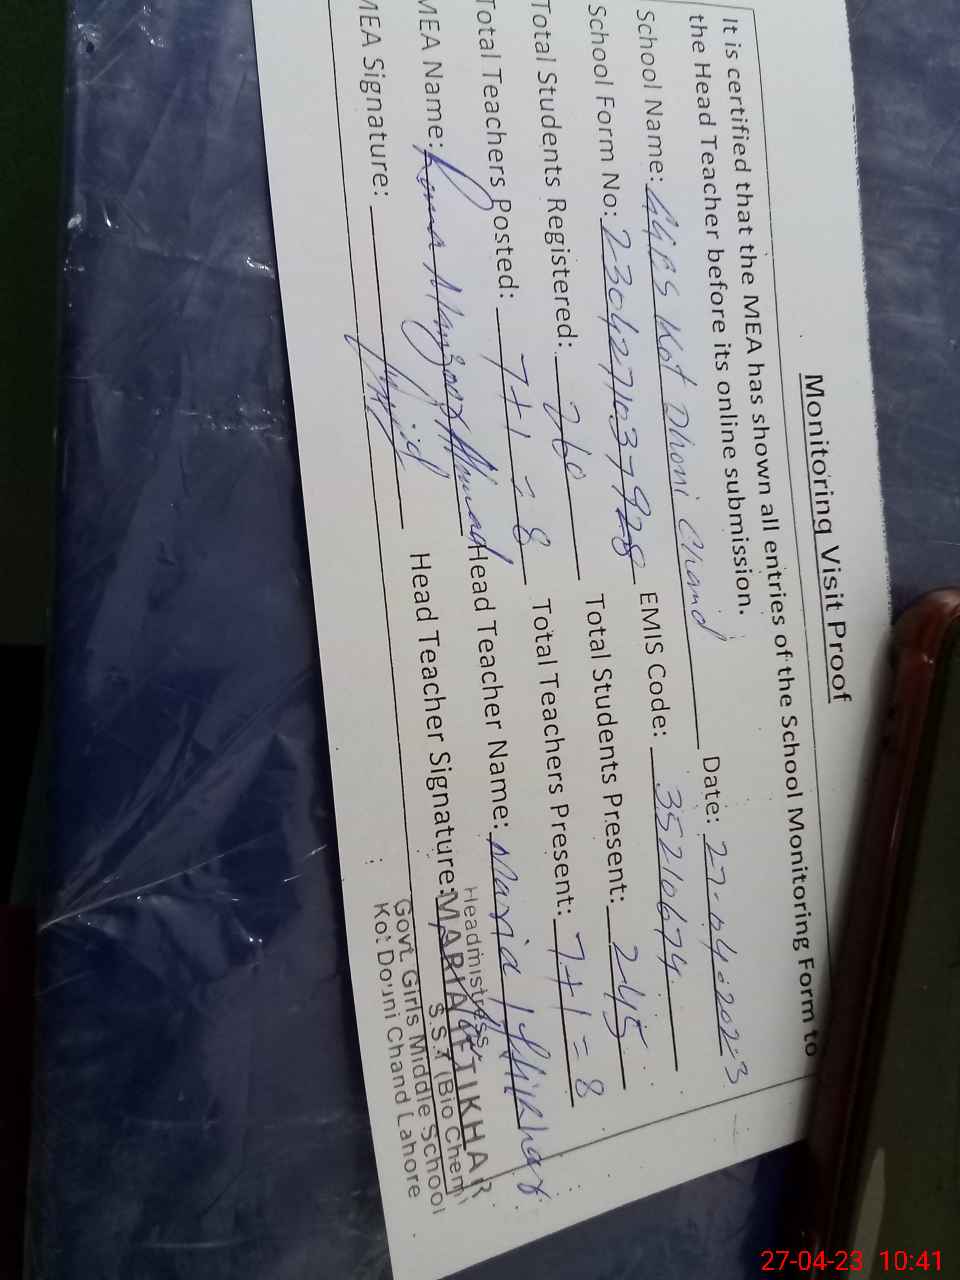 Monitoring Visit Proof
It is certified that the MEA has shown all entries of the School Monitoring Form to
the Head Teacher before its online submission.
School Name: GGES Kot Dhoni Chand Date: 27-04-2023
School Form No: EMIS Code: 35210674
Total Students Registered: 260 Total Students Present: 245
Total Teachers Posted: 7+1=8 Total Teachers Present: 7+1=8
MEA Name: Rana Ahmad Head Teacher Name: Maria Iftikhar
MEA Signature: Head Teacher Signature:
Headmistress
MARIA IFTIKHAR
S.S.T (Bio Chem)
Govt. Girls Middle School
Kot Douni Chand Lahore
27-04-23 10:41